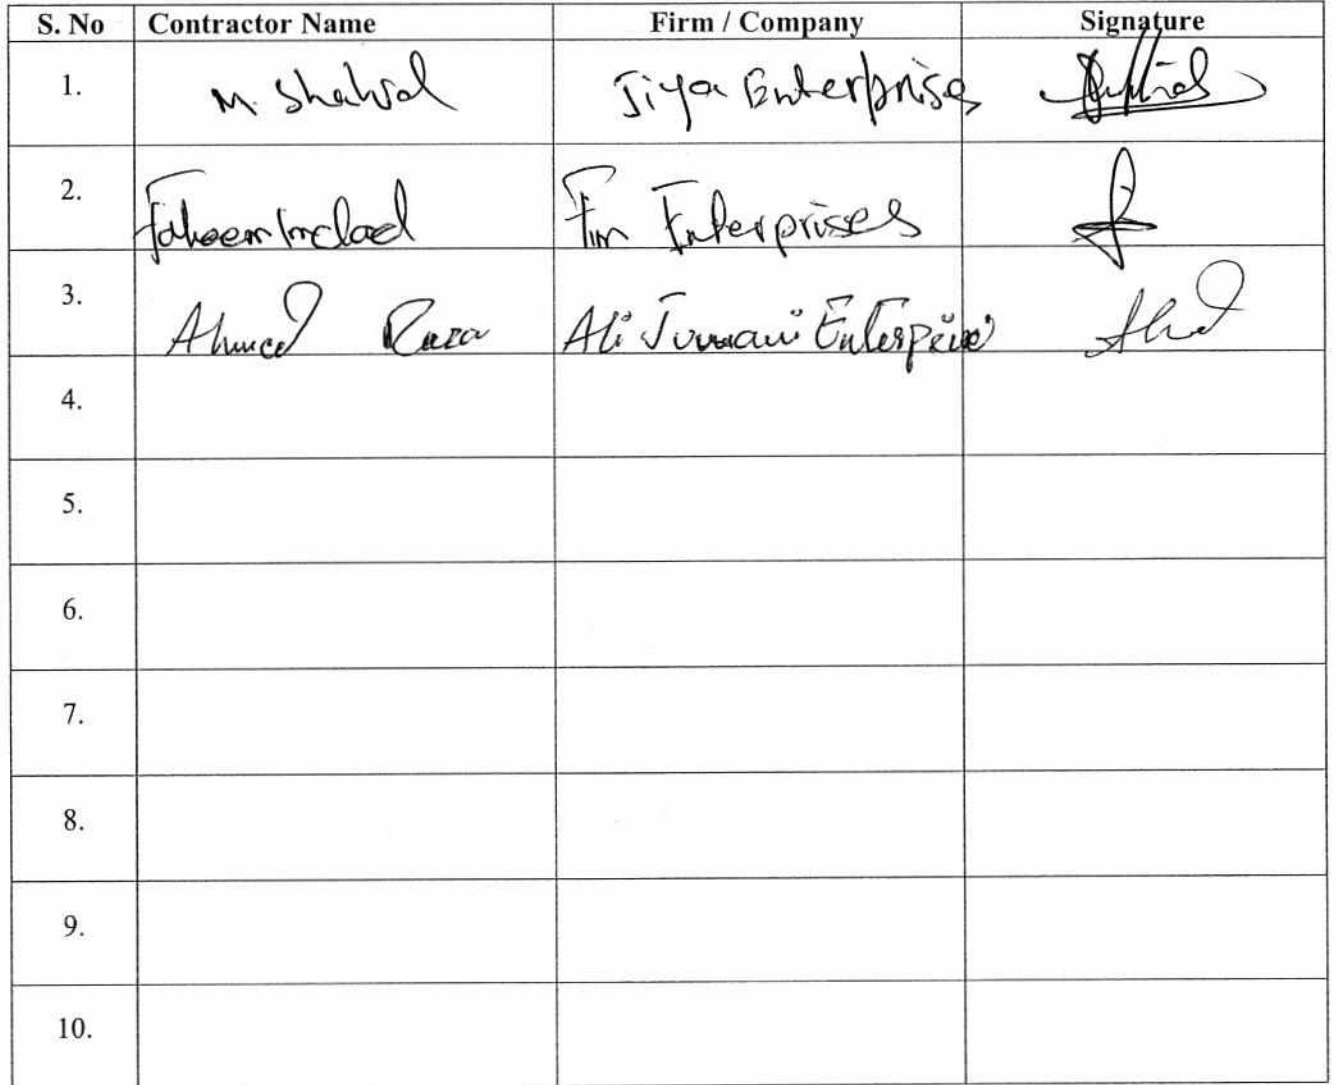 S. No Contractor Name Firm / Company Signature
1. M. Shahid Jiya Enterprises
2. Faheem Imdad Fim Enterprises
3. Ahmed Raza Ali Jumani Enterprise
4.
5.
6.
7.
8.
9.
10.